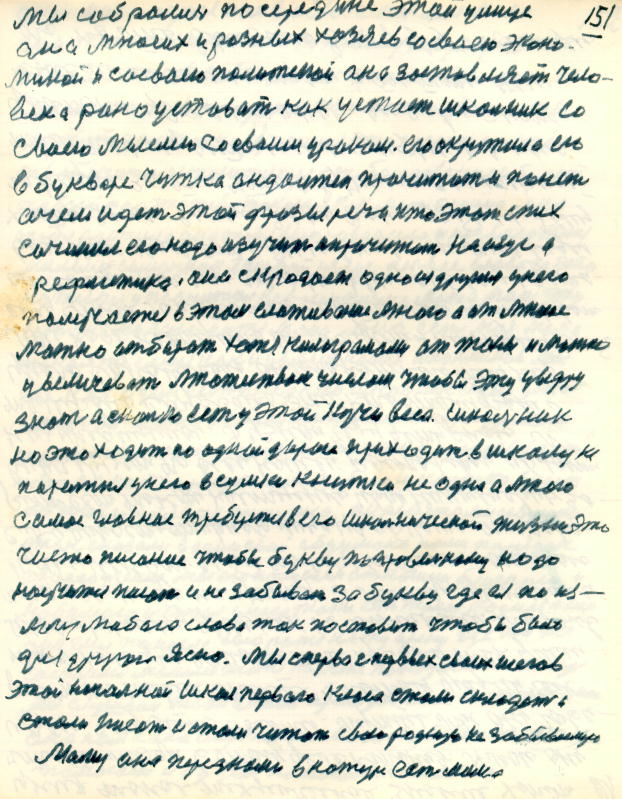 151
Мы собрались посередине этой улице
она многих и разных хозяев сосваею эконо-
микой и сосваею политекой она заставляет чело-
века рано уставать как устает школьник со
своею мыслею со своим уроком. его окружила его
в букваре читка он должен прочитать и понять
о чем идет этой фразы реч и кто этот стих
сочинил его надо изучить и прочитать Наизус а
рефметика. она с продает одно и другия у него
получается в этом много а от многе
можно отбират хотя килограмами от и можно
увеличеват множеством числом чтобы эту цыфру
знат а сколко ест у этой кучи веса. школьник
но это ходит по одной дароге приходит в школу и
у него в сумке книжка не одна а много
самое главное требуется в его школнической жизни это
чисто писание чтобы букву по надо
научится писат и не забыват за букву где ея по из-
любого слова так поставит чтобы было
для другога Ясно. Мы сперва с первых своих шегов
этой началной школ первого класа стали складоват и
стали писат и стали читат свою родную не забываемую
Маму она передноми в